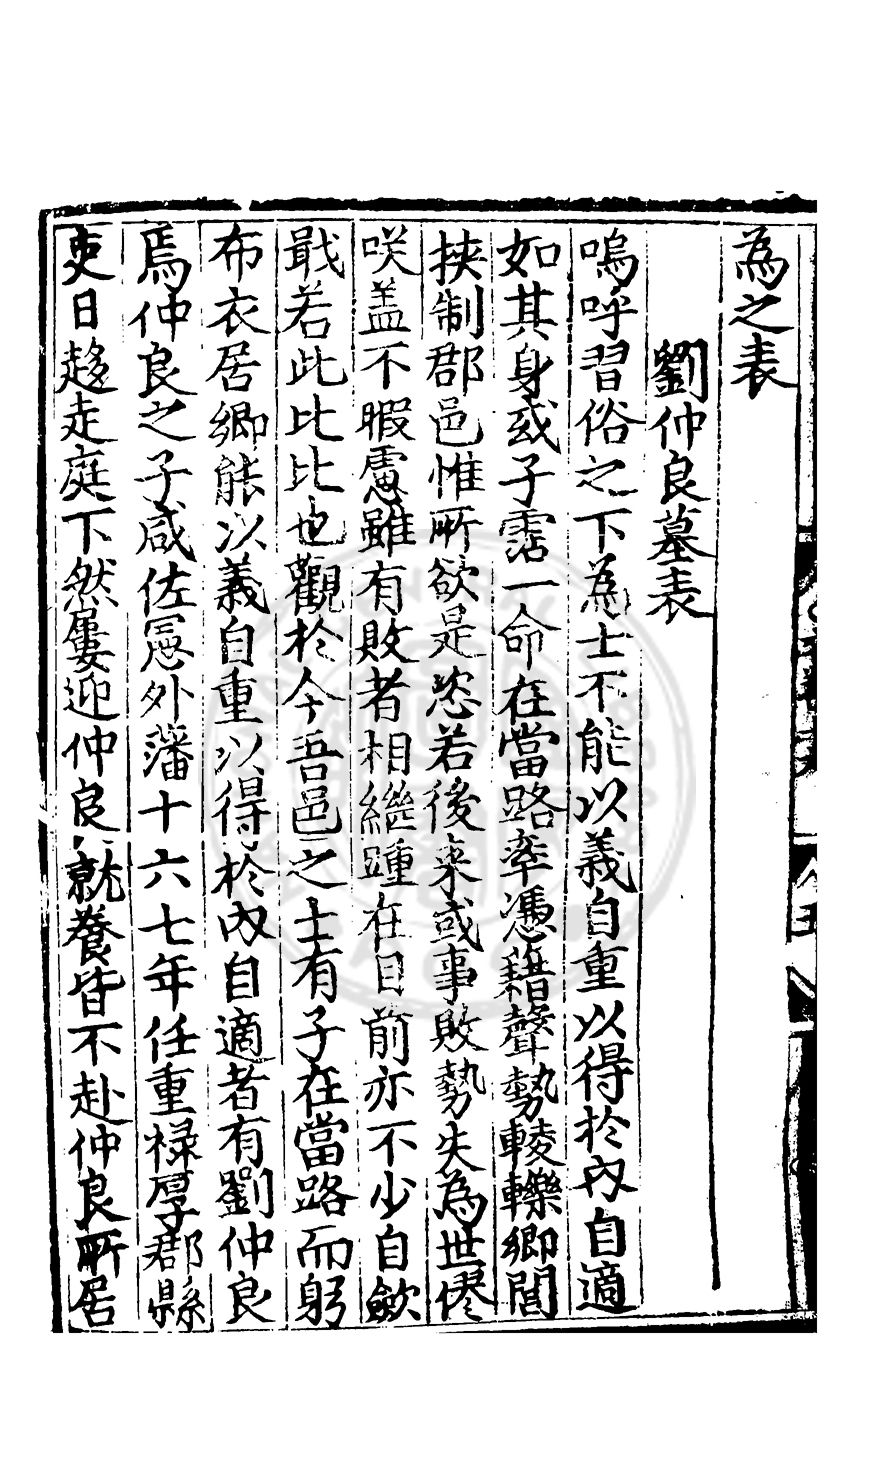 為之表
劉仲良墓表
嗚呼習俗之下為士不能以義自重以得於內自適
如其身或子霑一命在當路率憑藉聲勢轥轢鄉閭
挾制郡邑惟所欲是恣若後来或事敗勢失為世僇
咲盖不暇慮雖有敗者相継踵在目前亦不少自歛
戢若此比比也觀於今吾邑之士有子在當路而躬
布衣居鄉能以義自重以得於內自適者有劉仲良
焉仲良之子咸佐憲外藩十六七年任重祿厚郡縣
吏日趍走庭下然屢迎仲良就養皆不赴仲良所居